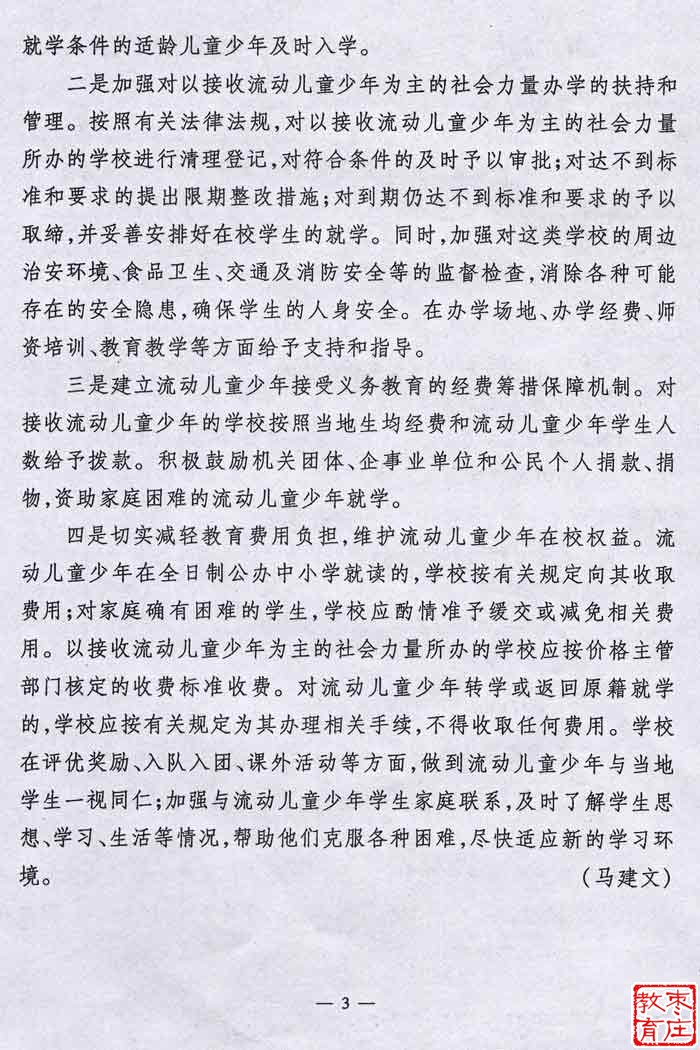 就学条件的适龄儿童少年及时入学。
二是加强对以接收流动儿童少年为主的社会力量办学的扶持和
管理。按照有关法律法规,对以接收流动儿童少年为主的社会力量
所办的学校进行清理登记,对符合条件的及时予以审批;对达不到标
准和要求的提出限期整改措施;对到期仍达不到标准和要求的予以
取缔,并妥善安排好在校学生的就学。同时,加强对这类学校的周边
治安环境、食品卫生、交通及消防安全等的监督检查,消除各种可能
存在的安全隐患,确保学生的人身安全。在办学场地、办学经费、师
资培训、教育教学等方面给予支持和指导。
三是建立流动儿童少年接受义务教育的经费筹措保障机制。对
接收流动儿童少年的学校按照当地生均经费和流动儿童少年学生人
数给予拨款。积极鼓励机关团体、企事业单位和公民个人捐款、捐
物,资助家庭困难的流动儿童少年就学。
四是切实减轻教育费用负担,维护流动儿童少年在校权益。流
动儿童少年在全日制公办中小学就读的,学校按有关规定向其收取
费用;对家庭确有困难的学生,学校应酌情准予缓交或减免相关费
用。以接收流动儿童少年为主的社会力量所办的学校应按价格主管
部门核定的收费标准收费。对流动儿童少年转学或返回原籍就学
的,学校应按有关规定为其办理相关手续,不得收取任何费用。学校
在评优奖励、入队入团、课外活动等方面,做到流动儿童少年与当地
学生一视同仁;加强与流动儿童少年学生家庭联系,及时了解学生思
想、学习、生活等情况,帮助他们克服各种困难,尽快适应新的学习环
境。 (马建文)
— 3 —
枣庄
教育